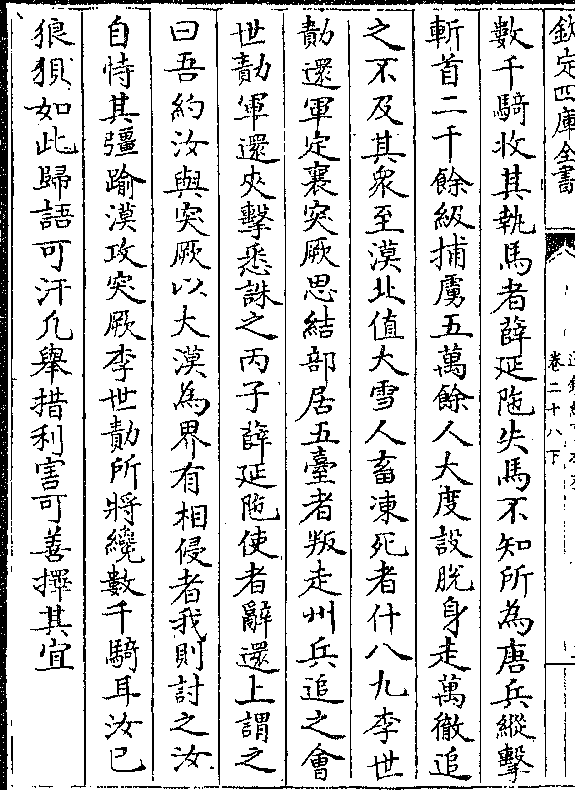 欽定四庫全書
卷二十八下
數千騎收其執馬者薛延陁失馬不知所為唐兵縱擊
斬首二千餘級捕虜五萬餘人大度設脫身走萬徹追
之不及其衆至漠北值大雪人畜凍死者什八九李世
勣還軍定襄突厥思結部居五臺者叛走州兵追之會
世勣軍還夾擊悉誅之丙子薛延陁使者辭還上謂之
曰吾約汝與突厥以大漠為界有相侵者我則討之汝
自恃其彊踰漠攻突厥李世勣所將纔數千騎耳汝已
狼狽如此歸語可汗凡舉措利害可善擇其宜